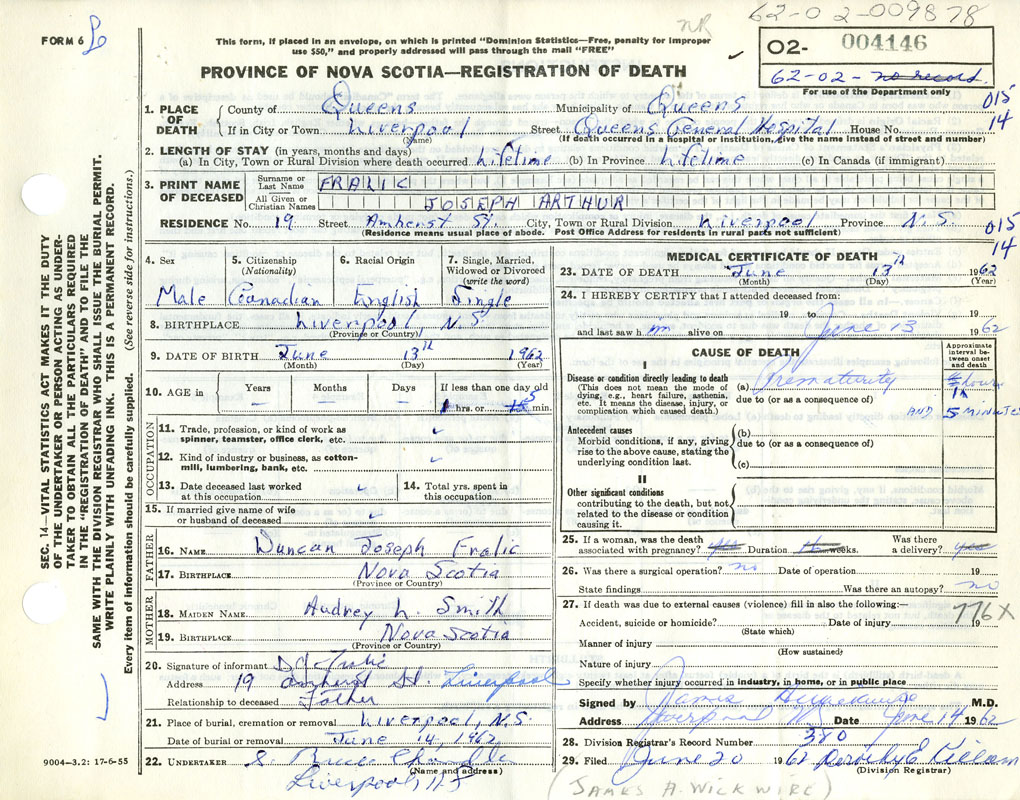 62-02-009878
NR
FORM 6
This form, if placed in an envelope, on which is printed "Dominion Statistics—Free, penalty for improper
use $50," and properly addressed will pass through the mail "FREE"
O2- 004146
62-02- no record.
For use of the Department only
PROVINCE OF NOVA SCOTIA—REGISTRATION OF DEATH
015
14
1. PLACE OF DEATH { County of Queens Municipality of Queens
If in City or Town Liverpool Street Queens General Hospital House No.
(Name) (If death occurred in a hospital or institution, give the name instead of street and number)
2. LENGTH OF STAY (in years, months and days)
(a) In City, Town or Rural Division where death occurred Lifetime (b) In Province Lifetime (c) In Canada (if immigrant)
3. PRINT NAME OF DECEASED { Surname or Last Name FRALIC
All Given or Christian Names JOSEPH ARTHUR
RESIDENCE No. 19 Street Amherst St. City, Town or Rural Division Liverpool Province N.S.
(Residence means usual place of abode. Post Office Address for residents in rural parts not sufficient)
015
14
4. Sex 5. Citizenship (Nationality) 6. Racial Origin 7. Single, Married, Widowed or Divorced (write the word)
Male Canadian English Single
8. BIRTHPLACE Liverpool, N.S.
(Province or Country)
9. DATE OF BIRTH June 13th 1962
(Month) (Day) (Year)
10. AGE in Years Months Days If less than one day old
1 hrs. or 5 min.
OCCUPATION
11. Trade, profession, or kind of work as spinner, teamster, office clerk, etc.
12. Kind of industry or business, as cotton-mill, lumbering, bank, etc.
13. Date deceased last worked at this occupation 14. Total yrs. spent in this occupation
15. If married give name of wife or husband of deceased
FATHER
16. NAME Duncan Joseph Fralic
17. BIRTHPLACE Nova Scotia
(Province or Country)
MOTHER
18. MAIDEN NAME Audrey L. Smith
19. BIRTHPLACE Nova Scotia
(Province or Country)
20. Signature of informant D J Fralic
Address 19 Amherst St. Liverpool
Relationship to deceased Father
21. Place of burial, cremation or removal Liverpool, N.S.
Date of burial or removal June 14, 1962
22. UNDERTAKER S. Bruce
(Name and address)
Liverpool, N.S
MEDICAL CERTIFICATE OF DEATH
23. DATE OF DEATH June 13th 1962
(Month) (Day) (Year)
24. I HEREBY CERTIFY that I attended deceased from:
19 to June 13
and last saw h im alive on 1962
CAUSE OF DEATH
Approximate interval between onset and death
I
Disease or condition directly leading to death
(This does not mean the mode of dying, e.g., heart failure, asthenia, etc. It means the disease, injury, or complication which caused death.)
(a) Prematurity
due to (or as a consequence of)
1 hour
AND 5 MINUTES
Antecedent causes
Morbid conditions, if any, giving rise to the above cause, stating the underlying condition last.
(b)
due to (or as a consequence of)
(c)
II
Other significant conditions
contributing to the death, but not related to the disease or condition causing it.
25. If a woman, was the death associated with pregnancy? yes Duration 16 weeks. Was there a delivery? yes
26. Was there a surgical operation? no Date of operation 19
State findings Was there an autopsy? no
27. If death was due to external causes (violence) fill in also the following:—
776X
Accident, suicide or homicide? Date of injury 19
(State which)
Manner of injury
(How sustained)
Nature of injury
Specify whether injury occurred in industry, in home, or in public place
Signed by James M.D.
Address Liverpool N.S. Date June 14 1962
28. Division Registrar's Record Number 380
29. Filed June 20 1962 Dorothy E Killam
(Division Registrar)
(JAMES A. WICKWIRE)
9004-3.2: 17-6-55
SEC. 14—VITAL STATISTICS ACT MAKES IT THE DUTY
OF THE UNDERTAKER OR PERSON ACTING AS UNDER-
TAKER TO OBTAIN ALL THE PARTICULARS REQUIRED
IN THE "REGISTRATION OF DEATH" AND TO FILE THE
SAME WITH THE DIVISION REGISTRAR WHO SHALL ISSUE THE BURIAL PERMIT.
WRITE PLAINLY WITH UNFADING INK. THIS IS A PERMANENT RECORD.
Every item of information should be carefully supplied. (See reverse side for instructions.)